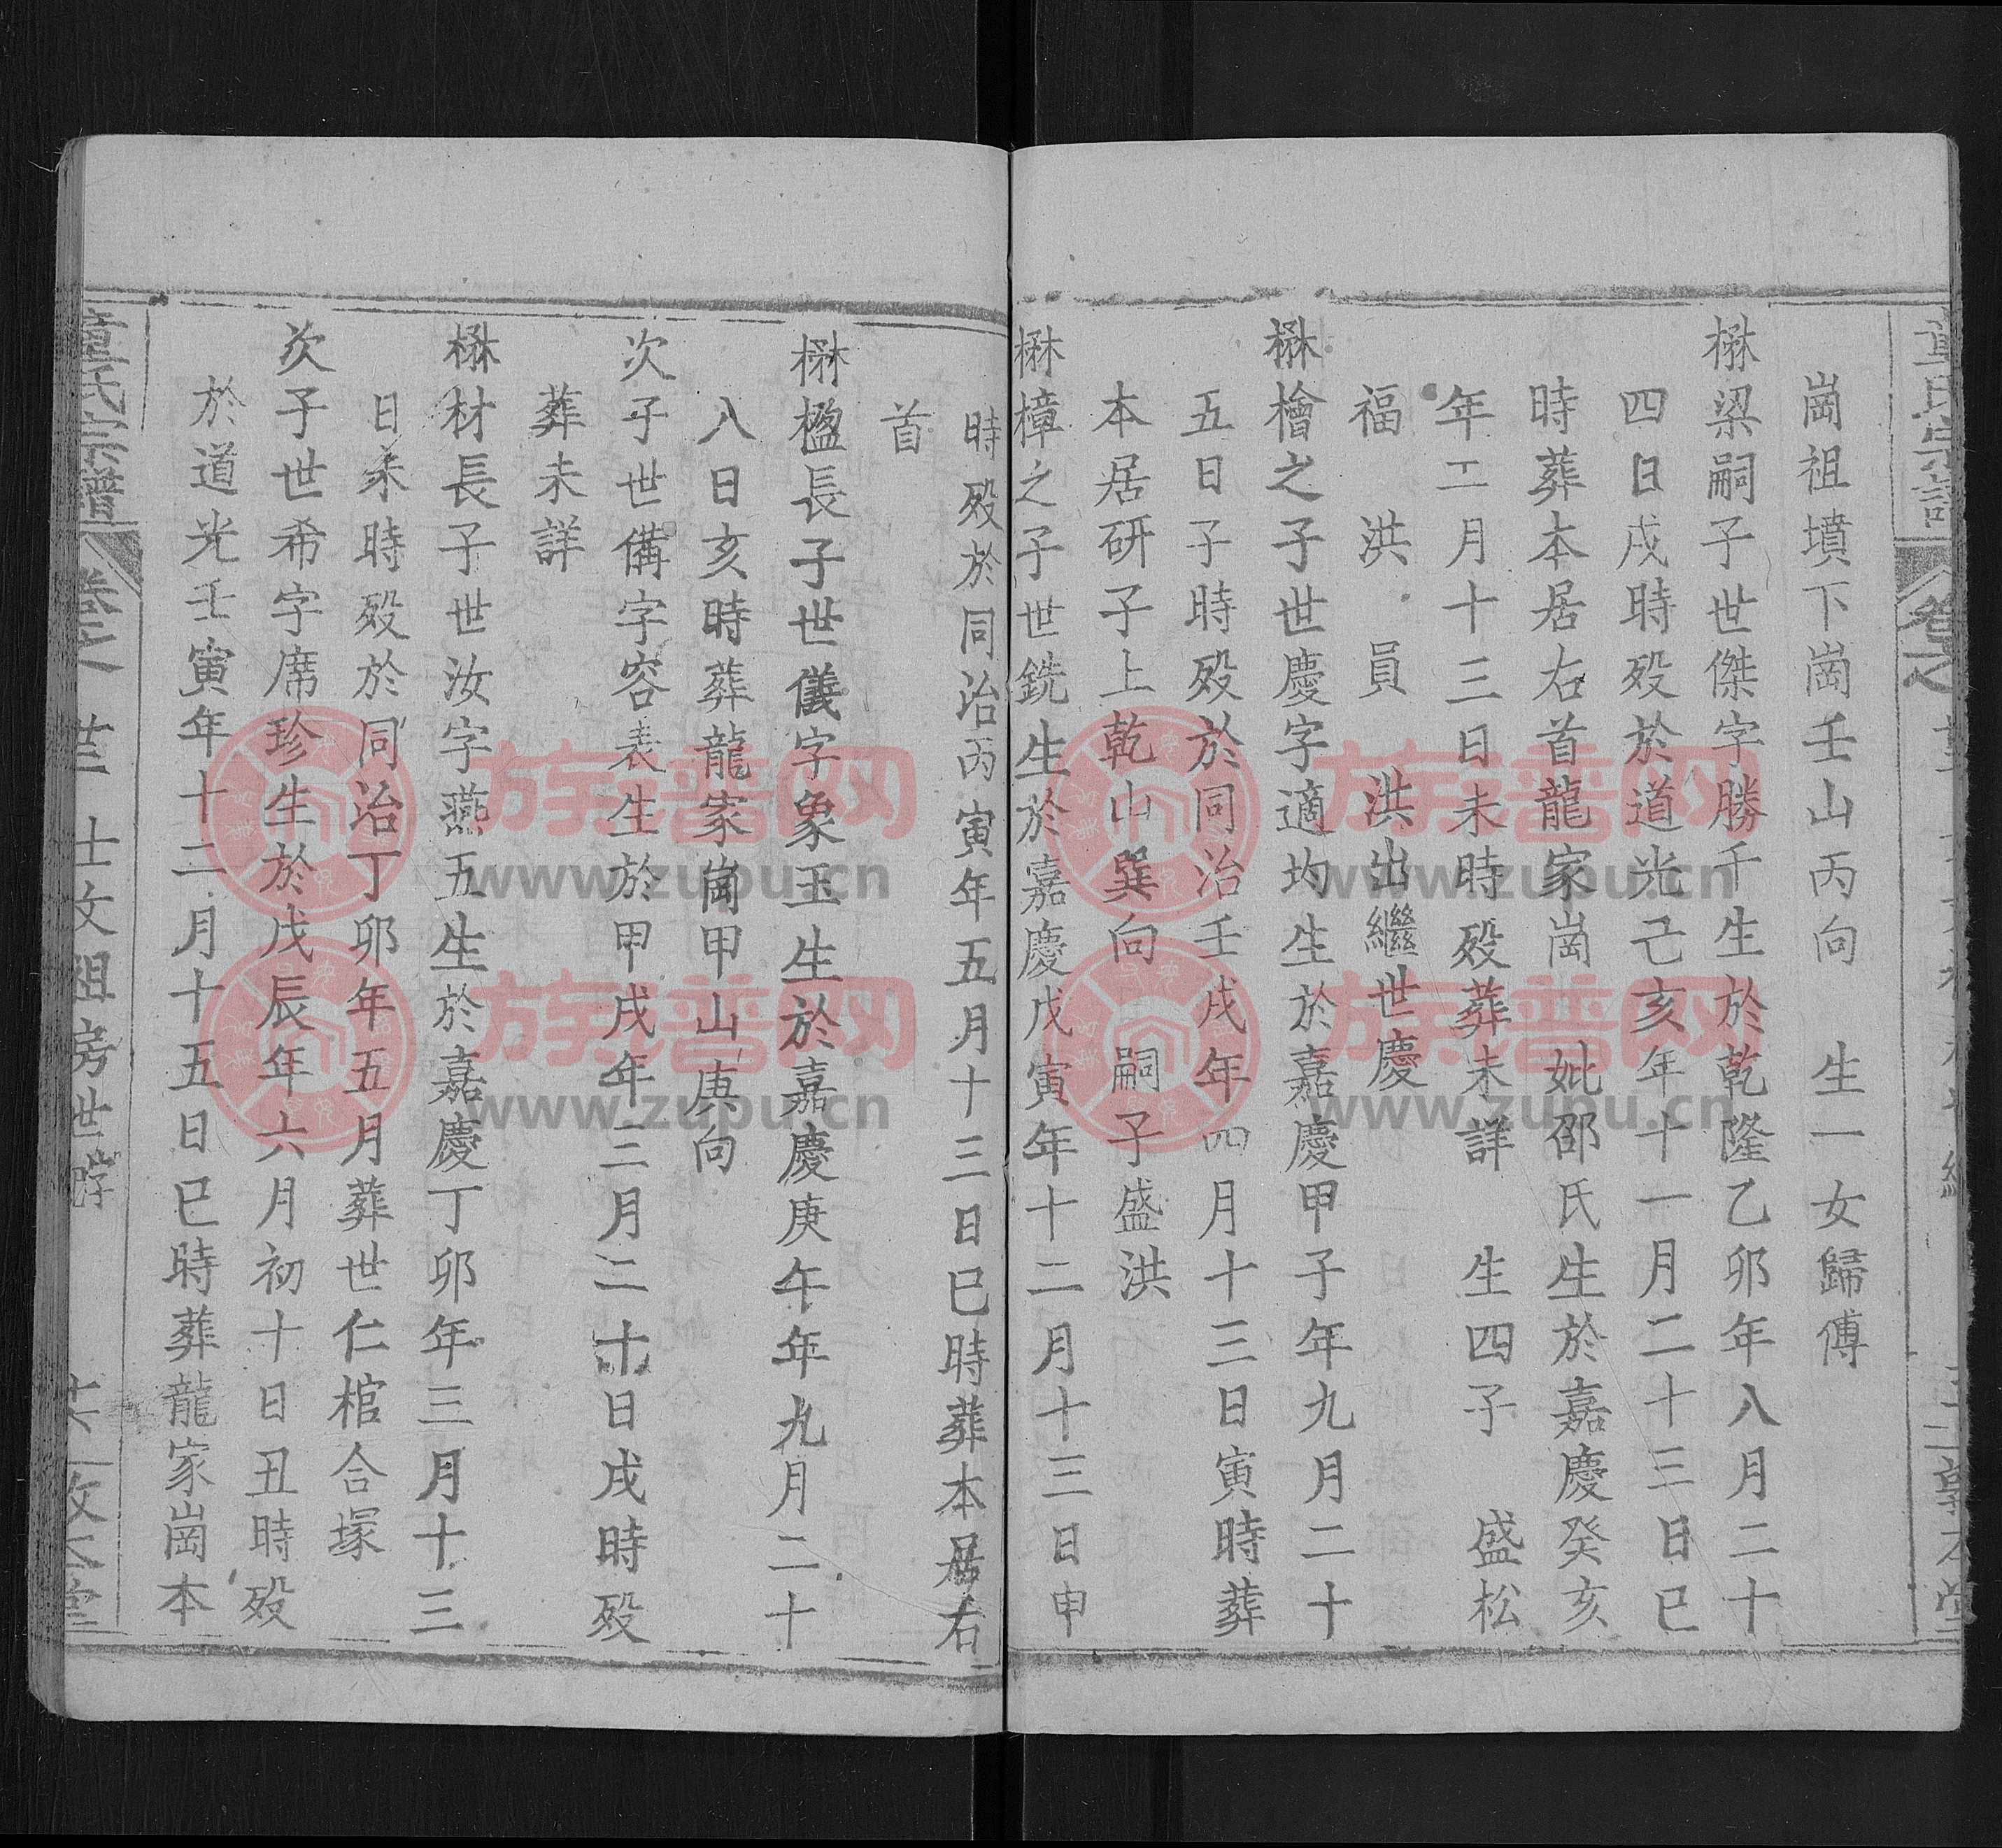 崗祖墳下崗壬山丙向 生一女歸傅
楙梁嗣子世傑字勝千生於乾隆乙卯年八月二十
四日戌時殁於道光己亥年十一月二十三日巳
時葬本居右首龍家崗 妣邵氏生於嘉慶癸亥
年二月十三日未時殁葬未詳 生四子 盛松
福 洪 員 洪出繼世慶
楙檜之子世慶字適均生於嘉慶甲子年九月二十
五日子時殁於同治壬戌年四月十三日寅時葬
本居研子上乾山巽向 嗣子盛洪
楙樟之子世銑生於嘉慶戊寅年十二月十三日申
時殁於同治丙寅年五月十三日巳時葬本居右
首
楙楹長子世儀字象玉生於嘉慶庚午年九月二十
八日亥時葬龍家崗甲山庚向
次子世備字容表生於甲戌年三月二十日戌時殁
葬未詳
楙材長子世汝字燕五生於嘉慶丁卯年三月十三
日未時殁於同治丁卯年五月葬世仁棺合塚
次子世希字席珍生於戊辰年六月初十日丑時殁
於道光壬寅年十二月十五日巳時葬龍家崗本
童氏宗譜 卷之 士文祖房世序
族谱网
www.zupu.cn
族谱网
www.zupu.cn
族谱网
www.zupu.cn
族谱网
www.zupu.cn